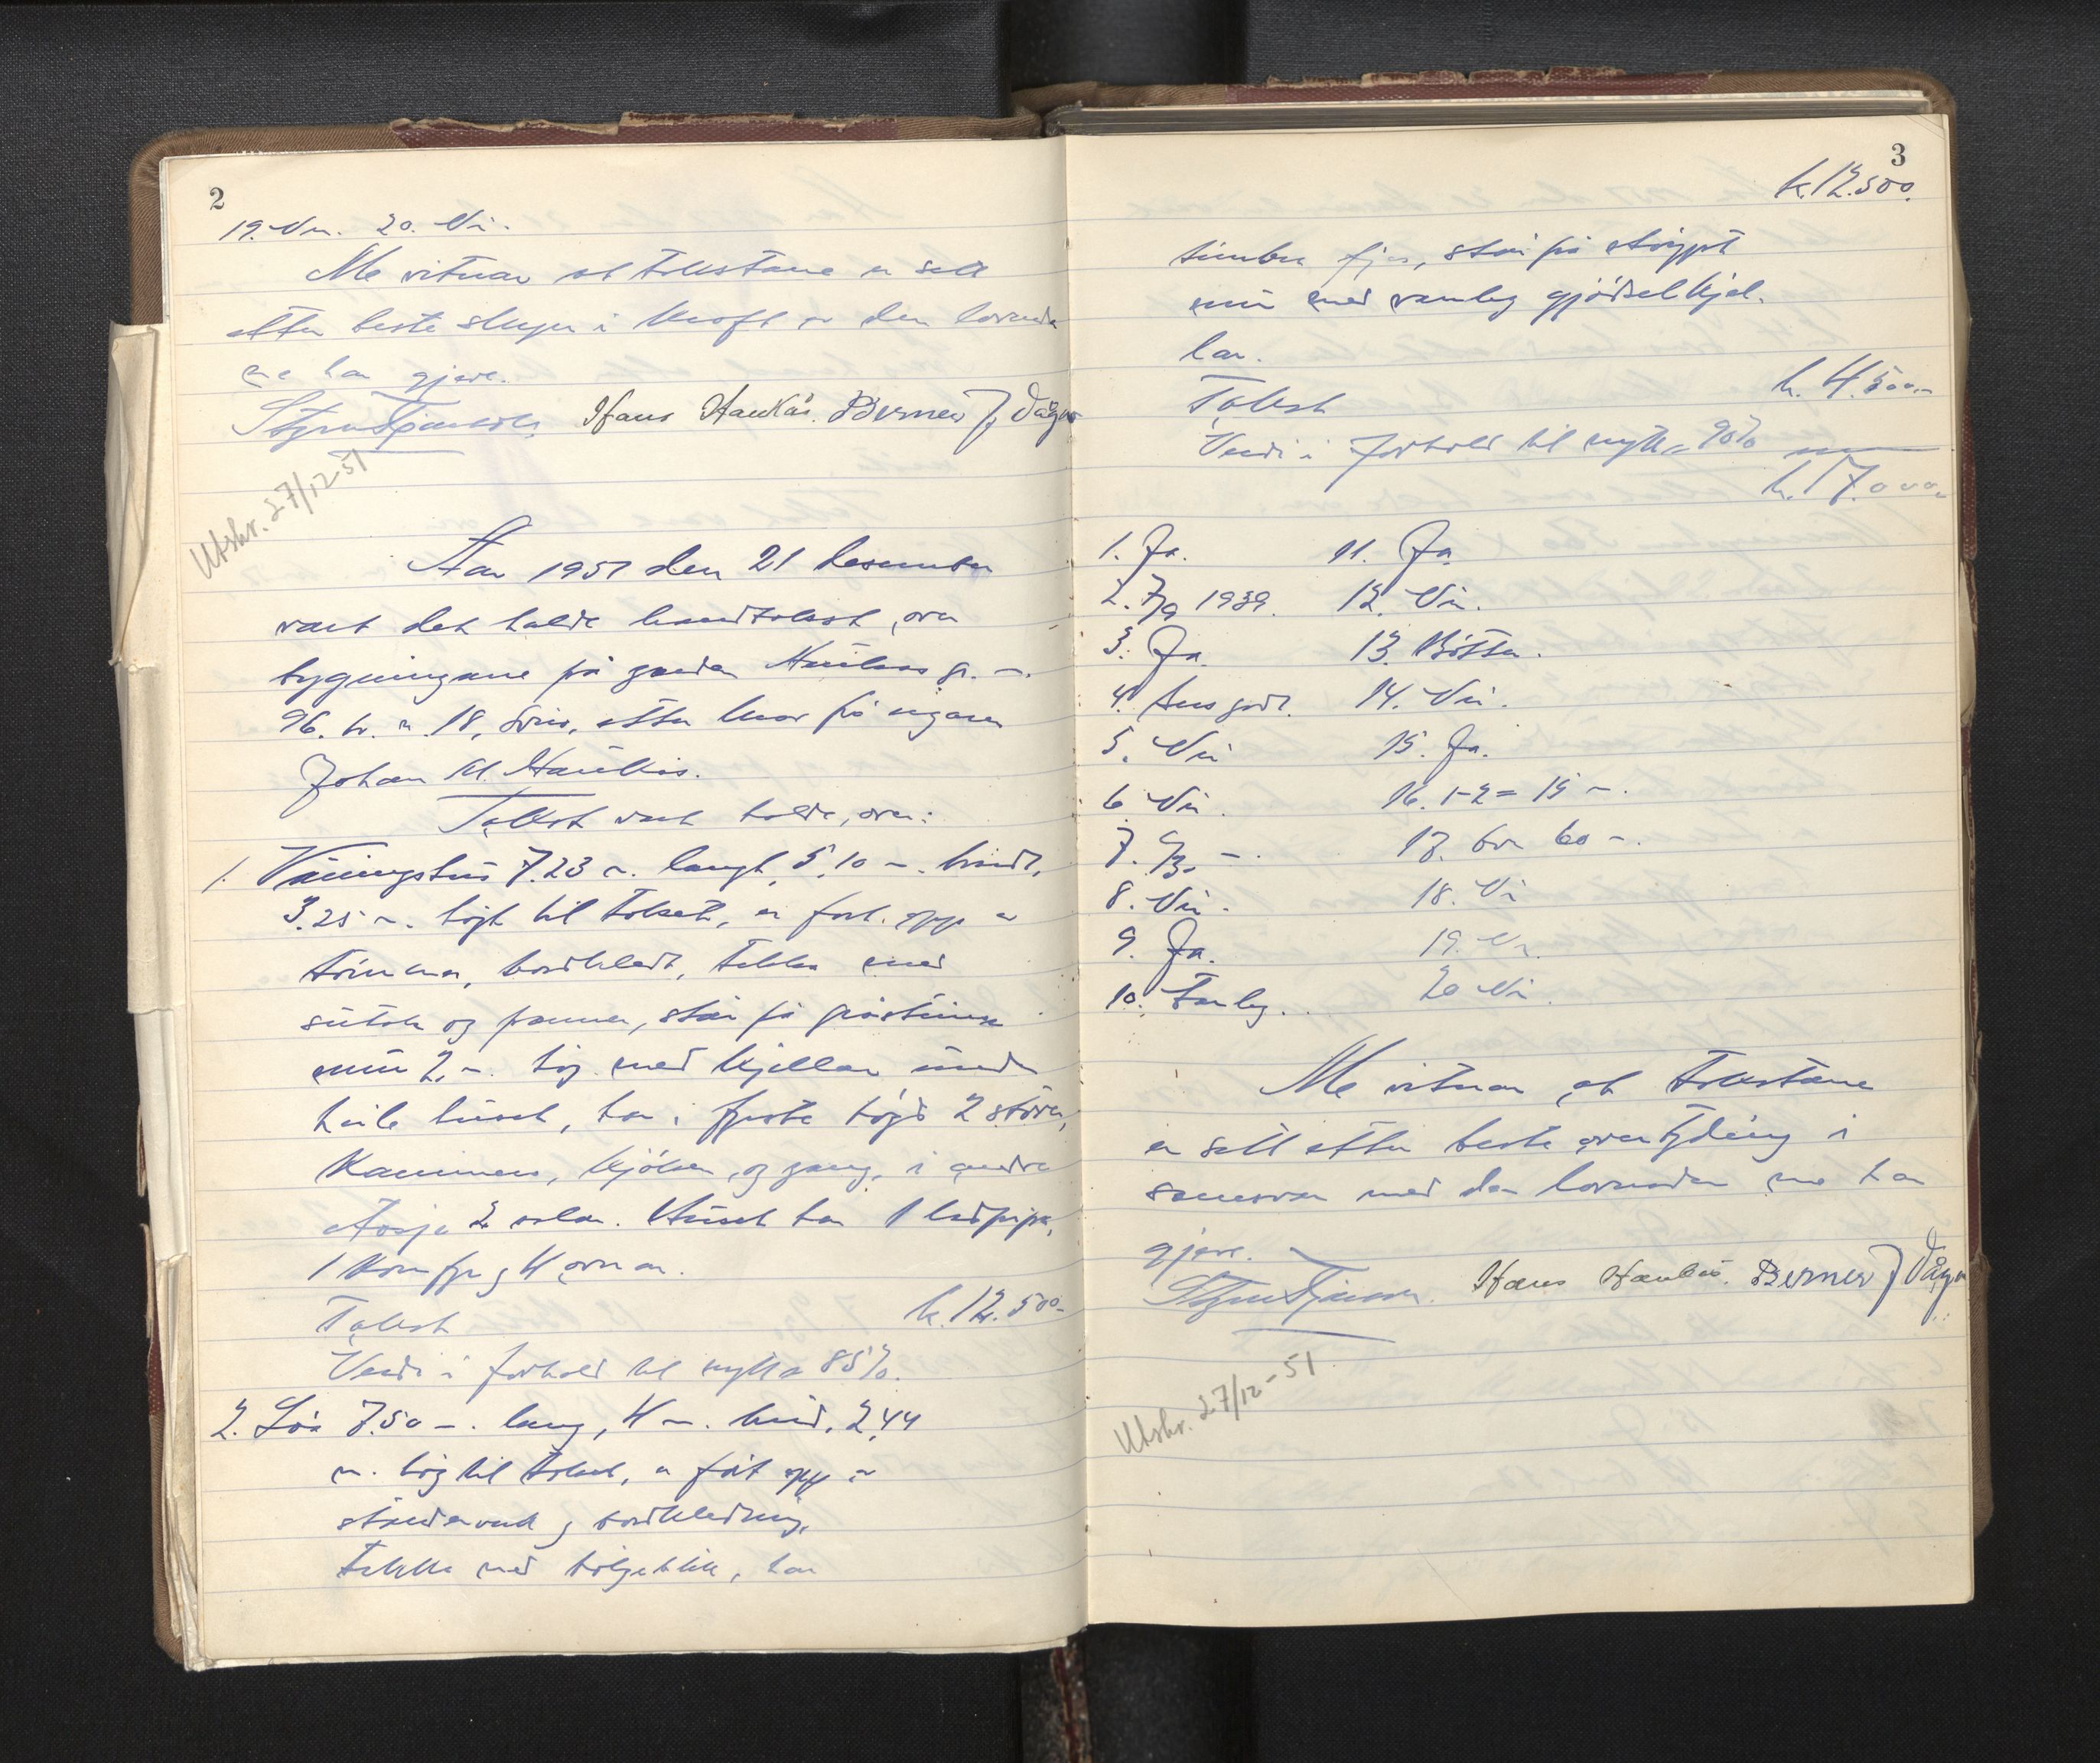 2
19. Nei. 20. Nei.
Me vitnar at takstane er sett
etter beste skyn i kraft av den lovnad
me har gjeve.
Hans Haukås. Berner J. Våge
Utskr. 27/12-51
Aar 1951 den 21 desember
vart det halde branntakst over
bygningane på garden Haukås g. nr.
96. br. nr. 18, etter krav frå eigaren
Johan M. Haukås.
Takst vart halde over:
1. Våningshus 7.23 m. langt, 5.10 m. breidt,
3.25 m. høgt til taket, er ført opp av
tømmer, bordkledt, tekka med
sutak og panner, står på gråsteins
mur 2 m. høg med kjellar under
heile huset, har i fyrste høgd 2 stover,
kammers, kjøken og gang, i andre
høgd 2 salar. Huset har 1 luftpipe,
1 komfyr og 4 omnar.
Takst k. 12.500-
Verdi i forhold til nytt = 85%.
2. Løe 7.50 m. lang, 4 m. breid, 2,44
m. høg til taket, er ført opp av
stenderverk og bordkledning,
tekka med bølgeblikk, har
3
k. 12.500.
timbra fjos, står på støypt
mur med vanleg gjødselkjel-
lar.
Takst k. 4.500.-
Verdi i forhold til nytt = 90%
k. 17.000.-
1. Ja. 11. Ja.
2. 7/9 1939. 12. Nei.
3. Ja. 13. Bøtter.
4. 14. Nei.
5. Nei 15. Ja.
6 Nei. 16. 1-2 = 15 m.
7. 17. over 60 m.
8. Nei. 18. Nei
9. Ja. 19. Nei.
10. Farleg. 20 Nei.
Me vitnar at takstane
er sett etter beste overtyding i
samsvar med den lovnaden me har
gjeve.
Hans Haukås. Berner J Våge
Utskr. 27/12-51